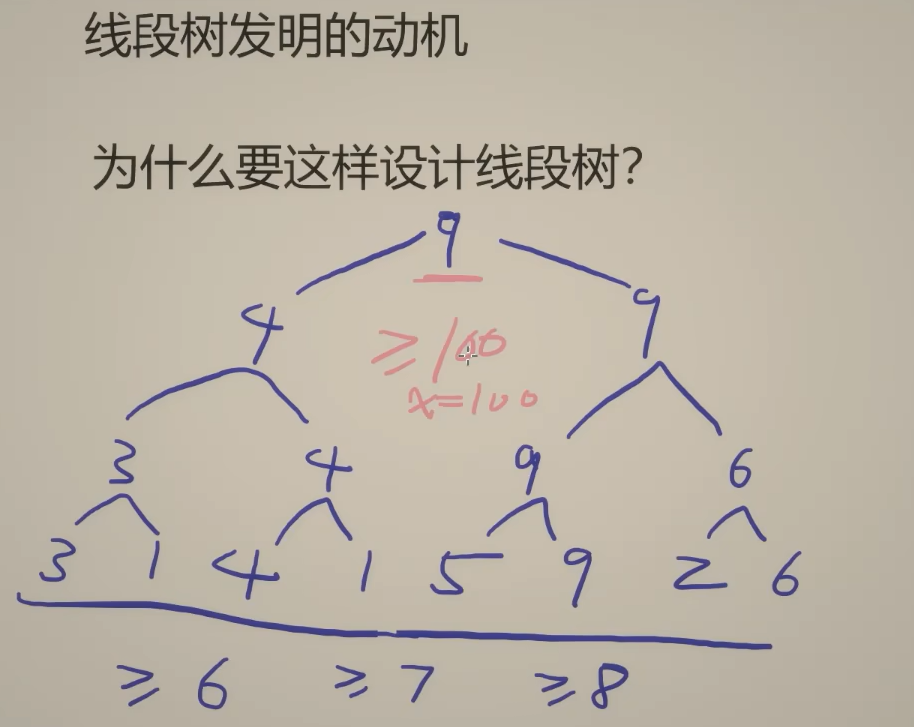 线段树发明的动机
为什么要这样设计线段树?
9
4 9
≥100
x=100
3 4 9 6
3 1 4 1 5 9 2 6
≥6 ≥7 ≥8